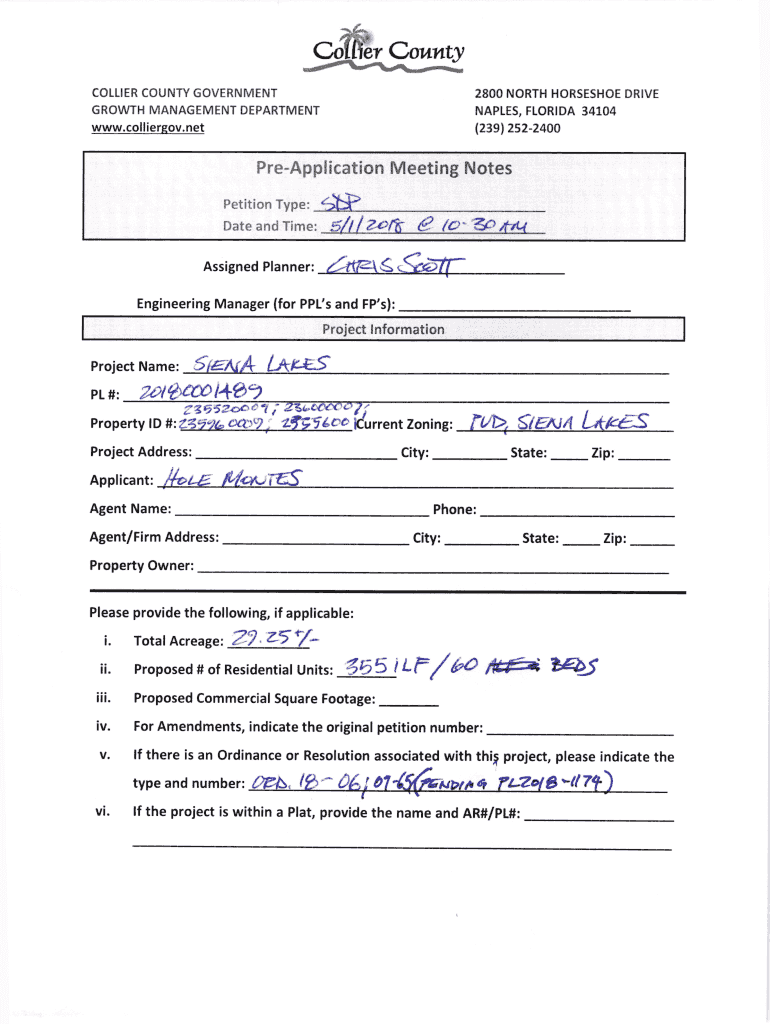 Collier County
COLLIER COUNTY GOVERNMENT
GROWTH MANAGEMENT DEPARTMENT
www.colliergov.net
2800 NORTH HORSESHOE DRIVE
NAPLES, FLORIDA 34104
(239) 252-2400
Pre-Application Meeting Notes
Petition Type: SDP
Date and Time: 5/1/2018 @ 10-30 AM
Assigned Planner: CHRIS SCOTT
Engineering Manager (for PPL's and FP's):
Project Information
Project Name: SIENA LAKES
PL #: 20180001489
Property ID #: Current Zoning: PUD, SIENA LAKES
Project Address: City: State: Zip:
Applicant: HOLE MONTES
Agent Name: Phone:
Agent/Firm Address: City: State: Zip:
Property Owner:
Please provide the following, if applicable:
i. Total Acreage: 29.25 +/-
ii. Proposed # of Residential Units: 355 ILF / 60 BEDS
iii. Proposed Commercial Square Footage:
iv. For Amendments, indicate the original petition number:
v. If there is an Ordinance or Resolution associated with this project, please indicate the
type and number: ORD. 18-06; 09-65 (PENDING PL2018-1174)
vi. If the project is within a Plat, provide the name and AR#/PL#: